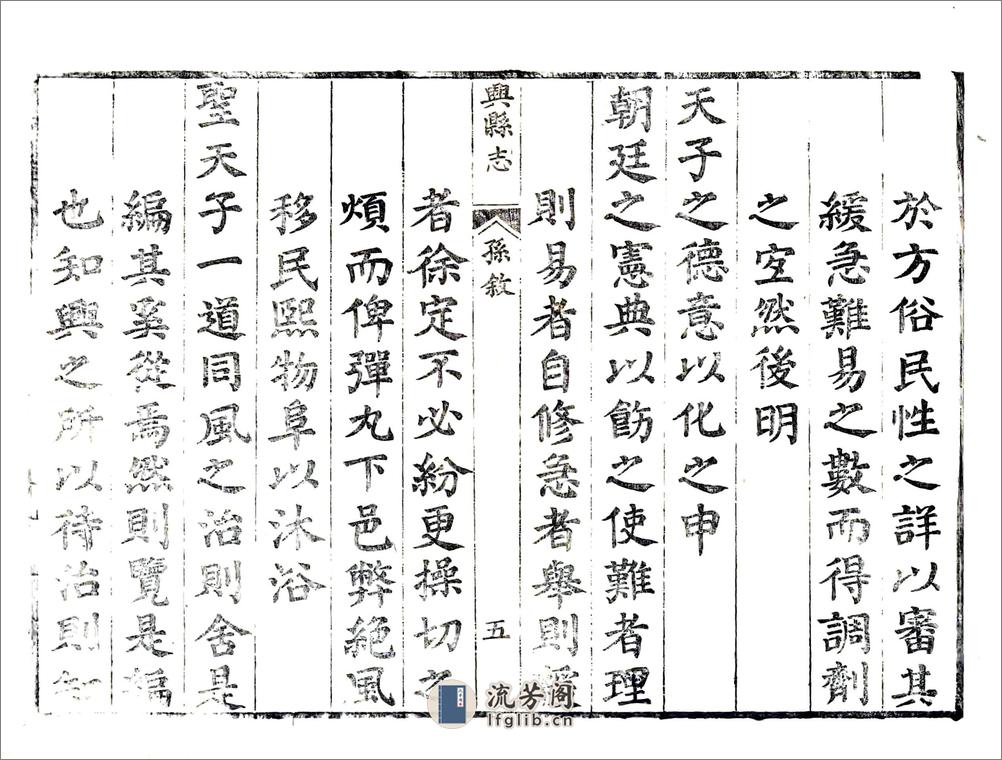 於方俗民性之詳以審其
緩急難易之數而得調劑
之宐然後明
天子之德意以化之申
朝廷之憲典以飭之使難者理
則易者自修急者舉則緩
興縣志
孫敘
五
者徐定不必紛更操切之
煩而俾彈丸下邑弊絕風
移民熙物阜以沐浴
聖天子一道同風之治則舍是
編其奚從焉然則覽是編
也知興之所以待治則知
流芳阁
lfglib.cn